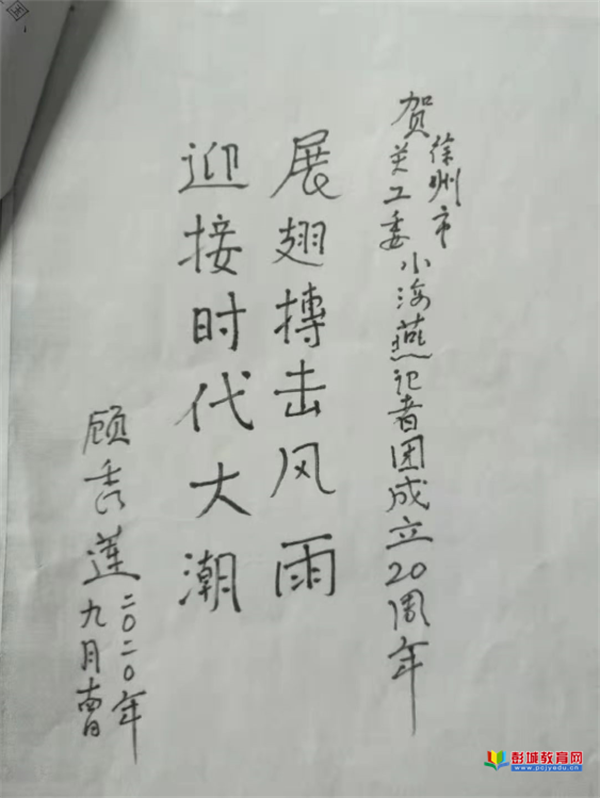 贺徐州市关工委小海燕记者团成立20周年
展翅搏击风雨
迎接时代大潮
顾秀莲
二〇二〇年
九月廿日
彭城教育网
www.pcjyedu.cn